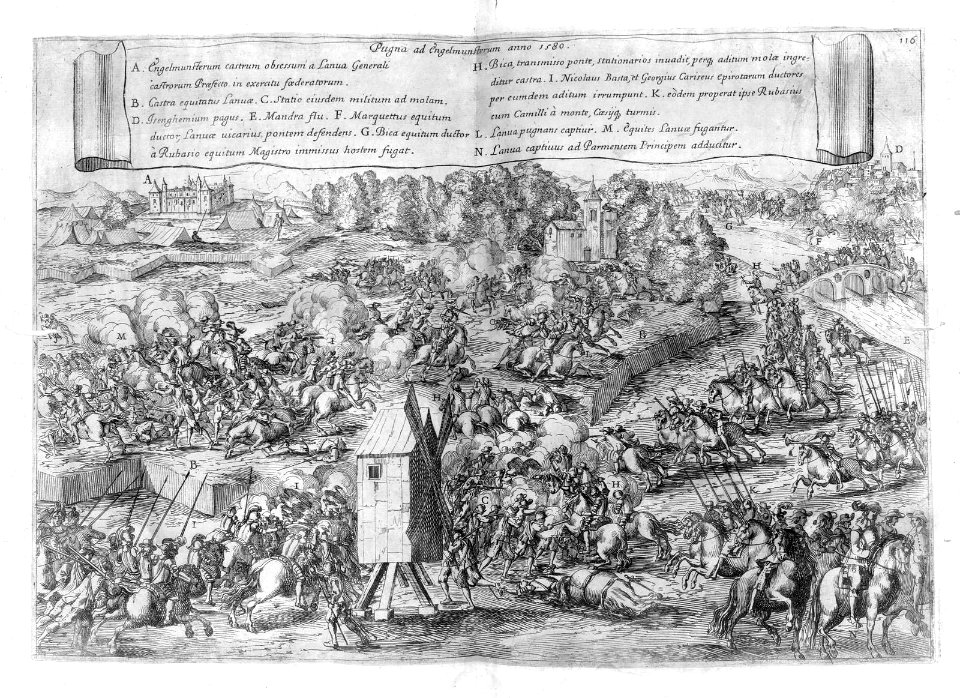 Pugna ad Engelmunsterum anno 1580.
116
A. Engelmunsterum castrum obsessum a Lanua Generali
castrorum Præfecto in exercitu fœderatorum.
B. Castra equitatus Lanuæ. C. Statio eiusdem militum ad molam.
D. Isenghemium pagus. E. Mandra flu. F. Marquettus equitum
ductor, Lanuæ uicarius, pontem defendens. G. Bica equitum ductor
à Rubasio equitum Magistro immissus hostem fugat.
H. Bica, transmisso ponte, stationarios inuadit, perq, aditum molæ ingre-
ditur castra. I. Nicolaus Basta, et Georgius Cariseus Epirotarum ductores
per eumdem aditum irrumpunt. K. eòdem properat ipse Rubasius
cum Camilli à monte, Cæsijq, turmis.
L. Lanua pugnans captiur. M. Equites Lanuæ fugantur.
N. Lanua captiuus ad Parmensem Principem adducitur.
A
D
G
F
H
E
M
I
B
H
B
I
C
H
K
N